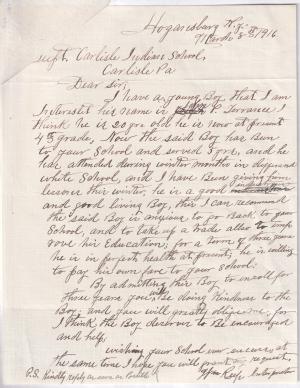 Hogansburg N.Y.
March 8th 1916.
Supt. Carlisle Indian School,
Carlisle Pa
Dear Sir;
I have a young Boy that I am
Interested his name is P. Terrance I
think he is 20 yrs old he is now at present
4th grade, Now the said Boy has Been
to your School and served 3 yrs. and he
has attended during winter months in
white School, and I have Been giving him
lessons this winter, he is a good
and good living Boy, this I can recommend
the said Boy is anxious to go Back to your
School, and to take up a trade also to imp
rove his Education; for a Term of three years
he is in perfect health at present; he is willing
to pay his own fare to your School.
By admitting this Boy to enroll for
three years you will Be doing Kindness to the
Boy, and you will greatly oblige me, for
I think the Boy deserves to Be encouraged
and help,
wishing your School success, at
the same time I hope you will grant request,
P.S. Kindly reply as soon as Possible